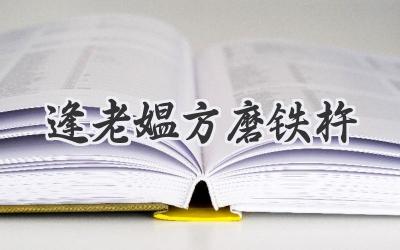 逢老媪方磨铁杵